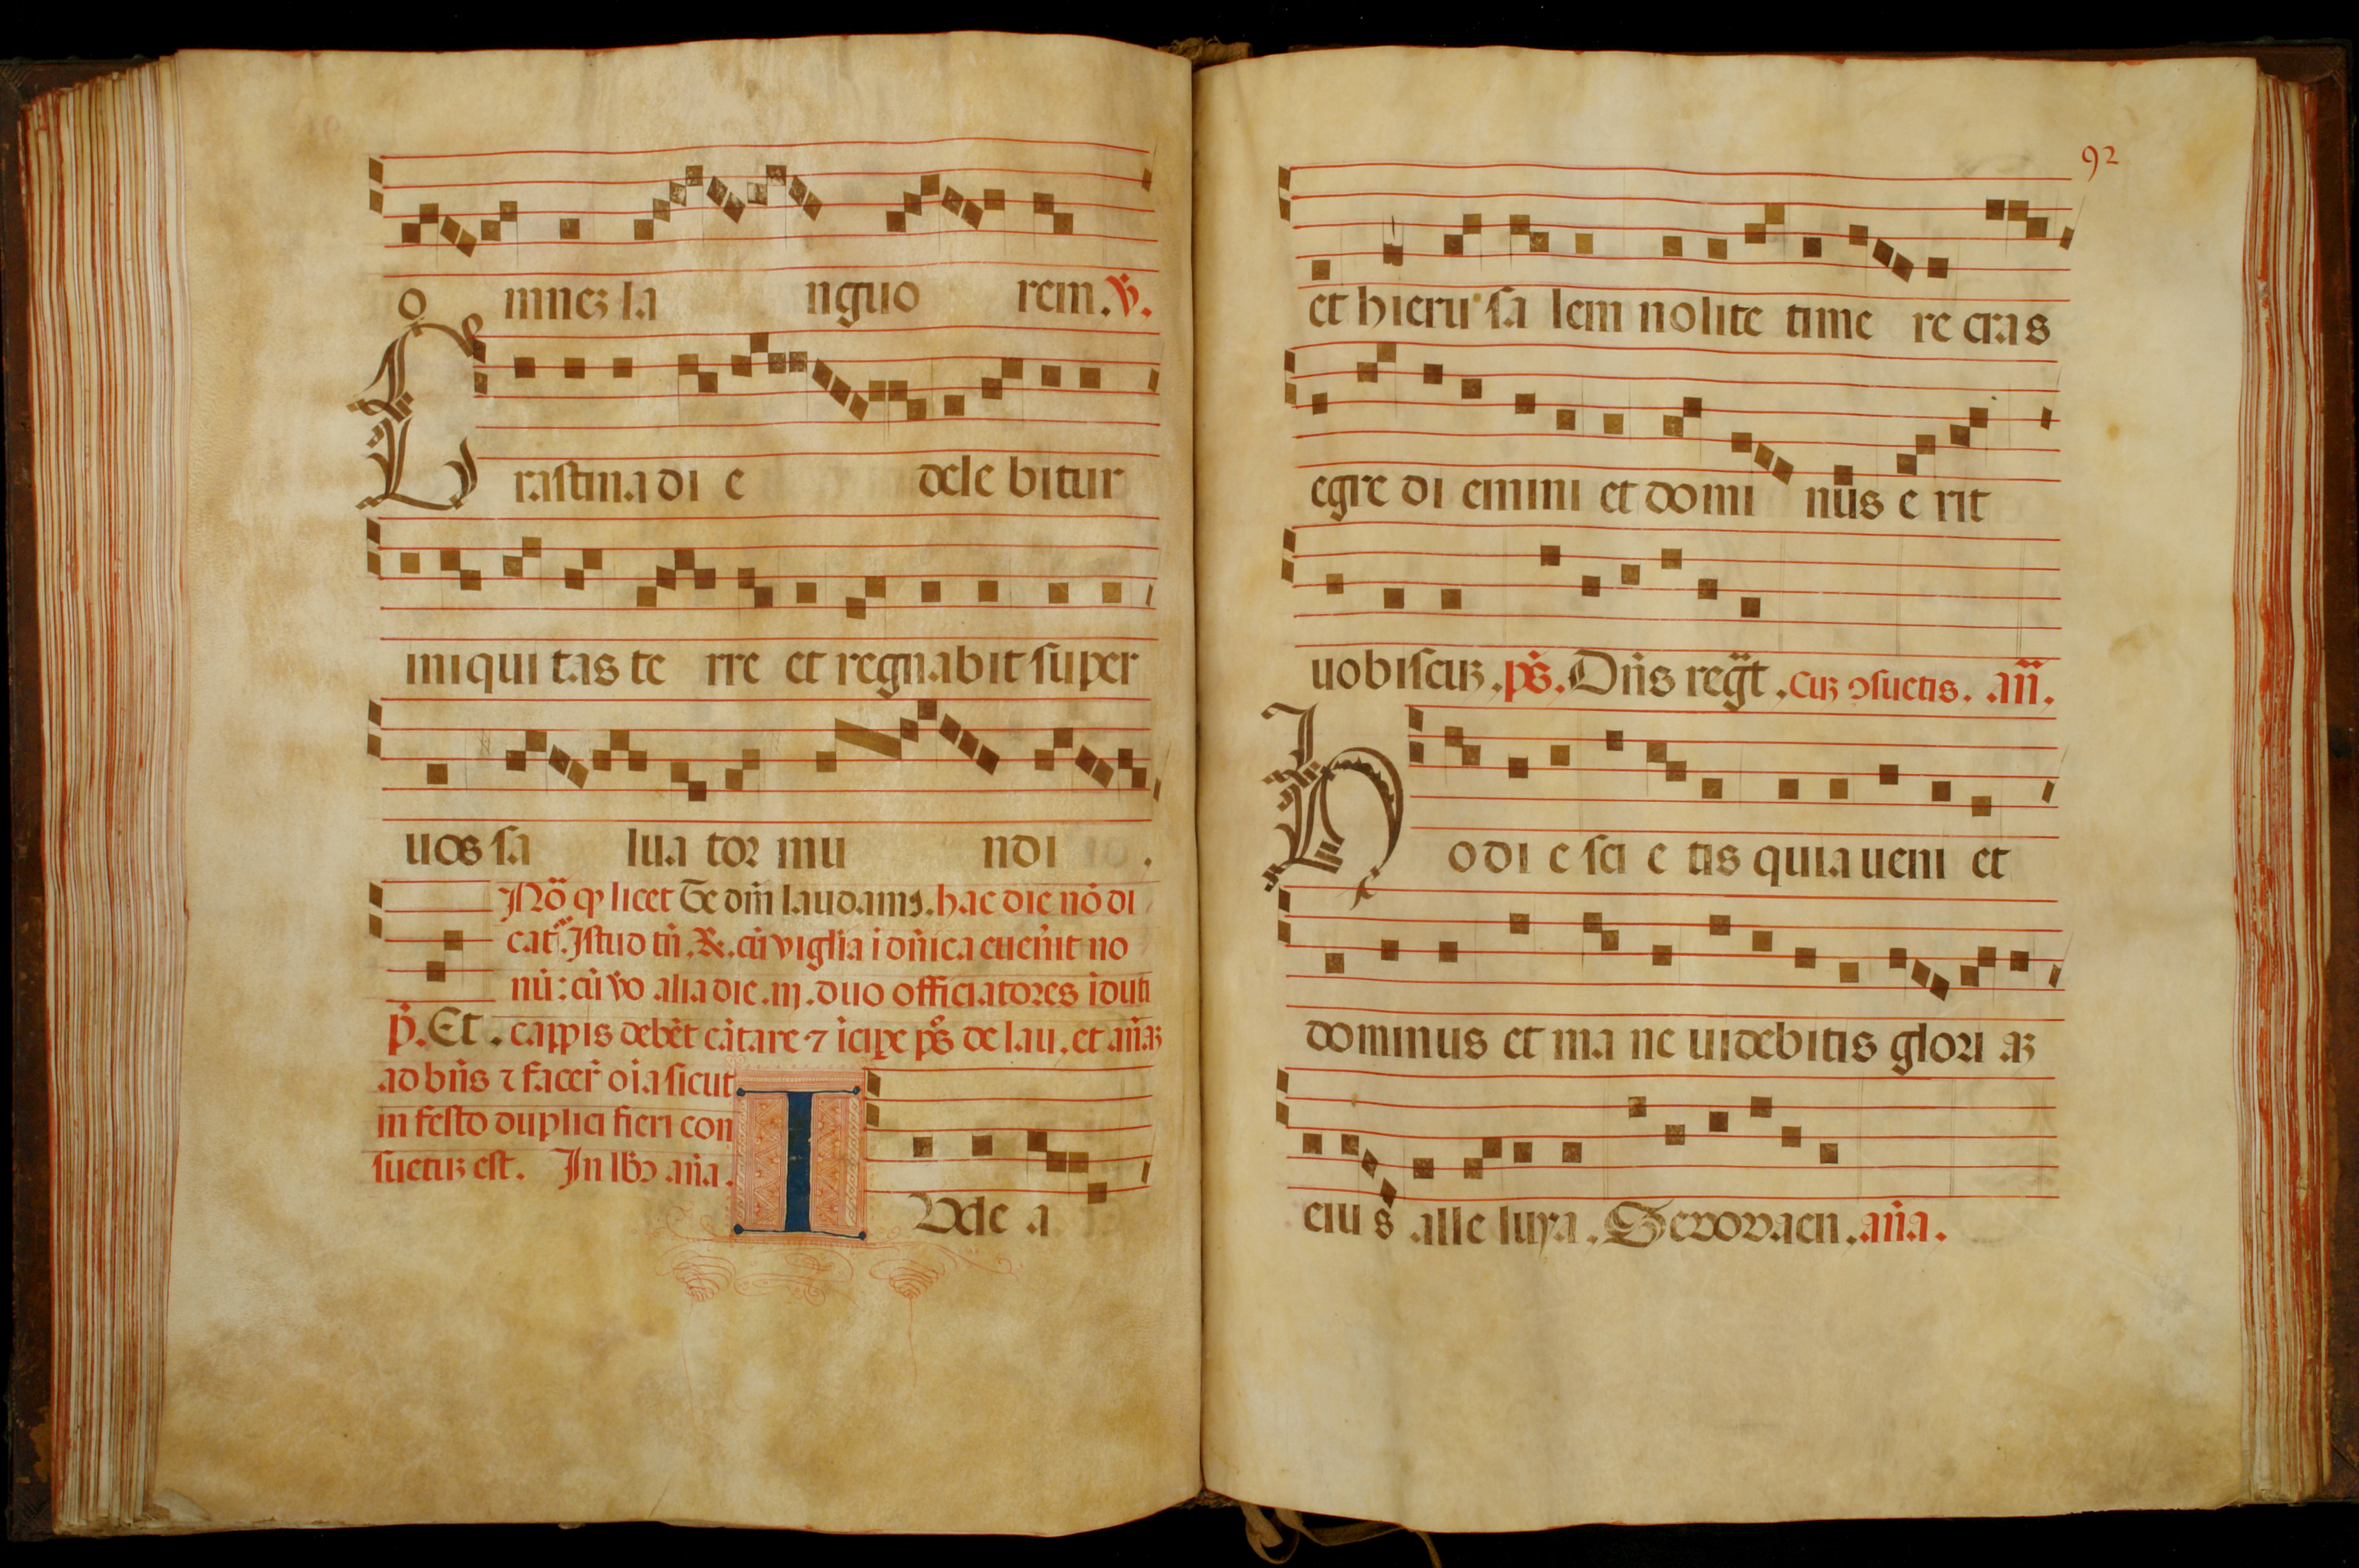 o mnez la nguo rem. V̇.
C rastina di e dele bitur
iniqui tas te rre et regnabit super
uos sa lua tor mu ndi .
Nõ qꝫ licet Te dm̃ laudamꝰ. hac die nõ di
cat᷑. Istud tñ. R. cũ viglia i dñica euenit no
nũ: cũ ṽo alia die .iij. duo officiatores iduti
p̃. Et . cappis debẽt cãtare ⁊ icipe pš de lau. et añaꝫ
ad bñs ⁊ facer̃ oĩa sicut
in festo duplici fieri con
suetuꝫ est. In lbꝰ aña.
I Vde a
92
et hieru sa lem nolite time re cras
egre di emini et domi nus e rit
uobiscuꝫ. pš. Dñs reg̃t. cuꝫ ↄsuetis. añ.
H odi e sci e tis quia ueni et
dominus et ma ne uidebitis glori aꝫ
eiu s alle luya. Seuouaen. aña.